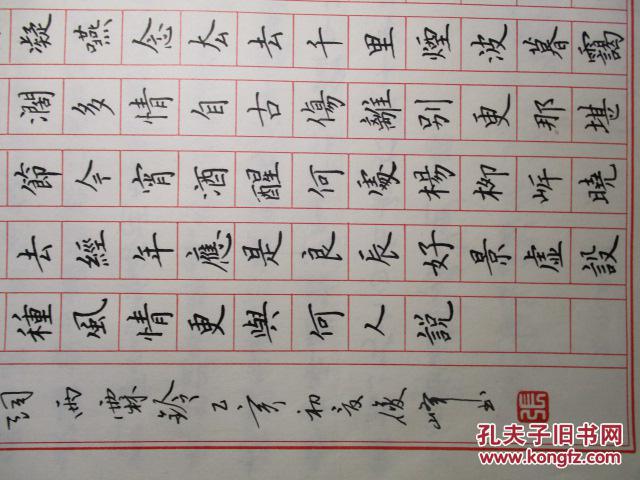 凝嚥念厺去千里煙波暮靄
闊多情自古傷離別更那堪
節今宵酒醒何處楊柳岸曉
去經年應是良辰好景虛設
種風情更與何人說
詞 雨霖鈴 乙亥初夏俊峰书
孔夫子旧书网
www.kongfz.com